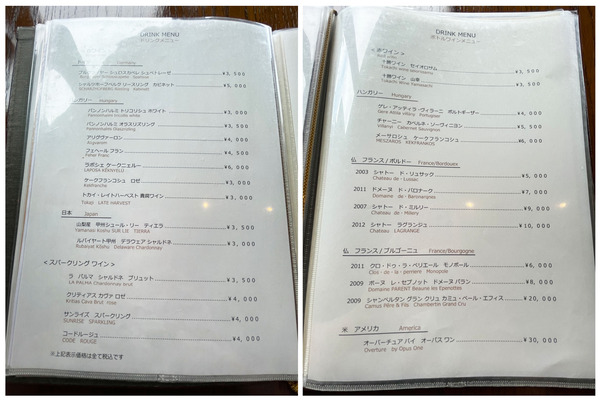 DRINK MENU
ドリンクメニュー
Germany
¥3,500
シャルツホーフベルク リースリング カビネット ¥5,000
SCHARZHOFBERG Riesling Kabinett
ハンガリー Hungary
パンノンハルミ トリコリシュ ホワイト ¥3,000
Pannonhalmi tricollis white
パンノンハルミ オラスリズリング ¥3,500
Pannonhalmi Olaszrizling
アリグヴァーロム ¥4,000
フェヘール フラン ¥4,500
Feher Franc
ラポシェ ケークニェルー ¥6,000
LAPOSA KEKNYELU
ケークフランコシュ ロゼ ¥3,000
Kekfrankos
トカイ・レイトハーベスト 貴腐ワイン ¥3,000
Tokaji LATE HARVEST
日本 Japan
山梨産 甲州シュール・リー ティエラ ¥3,500
Yamanasi Koshu SUR LIE TIERRA
ルバイヤート甲州 デラウェア シャルドネ ¥3,000
Rubaiyat Koshu Delaware Chardonnay
<スパークリング ワイン>
ラ パルマ シャルドネ ブリュット ¥3,500
LA PALMA Chardonnay brut
クリティアス カヴァ ロゼ ¥4,000
Kritias Cava Brut rose
サンライズ スパークリング ¥4,000
SUNRISE SPARKLING
コードルージュ ¥4,000
CODE ROUGE
※上記表示価格は全て税込です
DRINK MENU
ボトルワインメニュー
<赤ワイン>
十勝ワイン セイオロサム ¥3,500
Tokachi wine seiorosamu
十勝ワイン 山幸 ¥3,500
Tokachi wine
ハンガリー Hungary
ゲレ・アッティラ・ヴィラーニ ポルトギーザー ¥4,000
Gere Attila villanyi Portugieser
チャーニー カベルネ・ソーヴィニヨン ¥5,000
Villanyi Cabernet Sauvignon
メーサロシュ ケークフランコシュ ¥6,000
MESZAROS KEKFRANKOS
仏 フランス/ボルドー France/Bordouex
2003 シャトー ド・リュサック ¥5,000
Chateau de・Lussac
2011 ドメーヌ ド・バロナーク ¥7,000
Domaine de・Baronarques
2007 シャトー ド・ミルリー ¥9,000
Chateau de・
2012 シャトー ラグランジュ ¥10,000
Chateau LAGRANGE
仏 フランス/ブルゴーニュ France/Bourgogne
2011 クロ・ドゥ・ラ・ペリエール モノポール ¥6,000
Clos・de・la・perriere Monopole
2009 ボーヌ レ・セプノット ドメーヌ パラン ¥8,000
Domaine PARENT Beaune les Epenottes
2009 シャンベルタン グラン クリュ カミュ・ペール・エフィス ¥20,000
Camus Père & Fils Chambertin Grand Cru
米 アメリカ America
オーバーチュア バイ オーパス ワン ¥30,000
Overture by Opus One